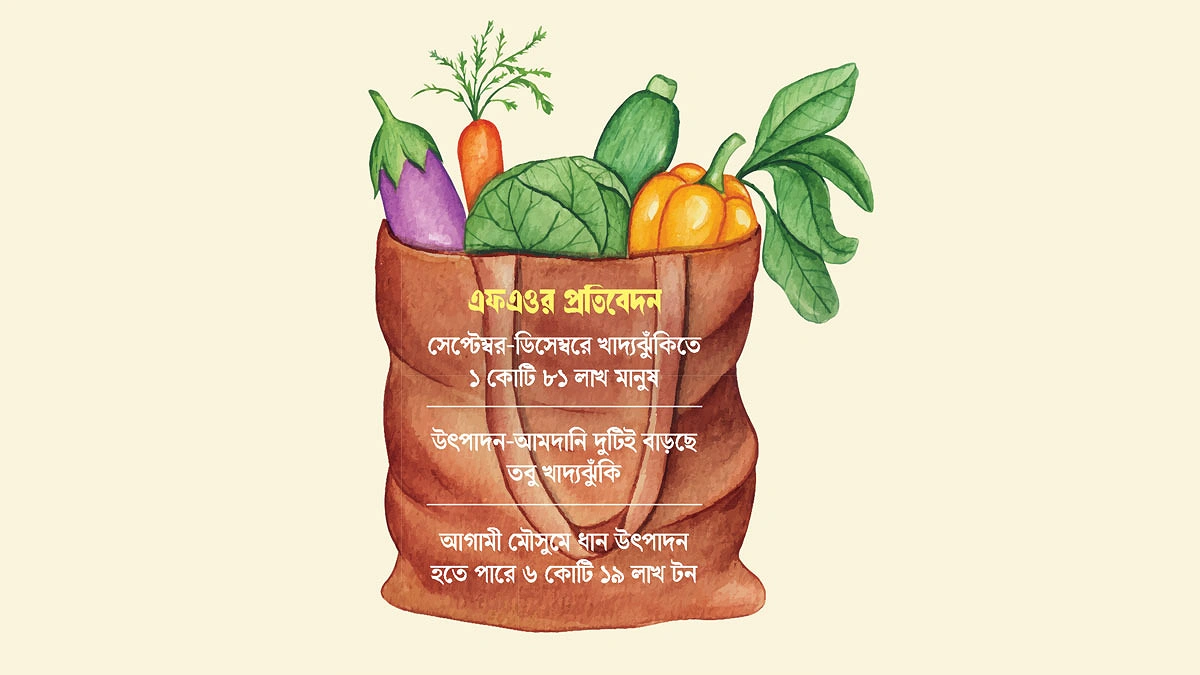 এফএওর প্রতিবেদন
সেপ্টেম্বর-ডিসেম্বরে খাদ্যঝুঁকিতে
১ কোটি ৮১ লাখ মানুষ
উৎপাদন-আমদানি দুটিই বাড়ছে
তবু খাদ্যঝুঁকি
আগামী মৌসুমে ধান উৎপাদন
হতে পারে ৬ কোটি ১৯ লাখ টন